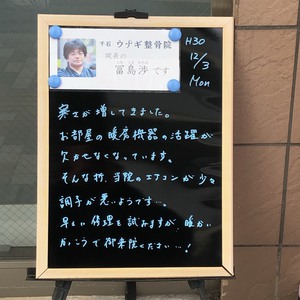 千石 ウナギ整骨院
院長の
冨島渉です
H30
12/3
Mon
寒さが増してきました。
お部屋の暖房機器の活躍が
欠かせなくなっています。
そんな折、当院のエアコンが少々
調子が悪いようです…。
早い修理を試みますが、暖かい
かっこうで御来院ください…！